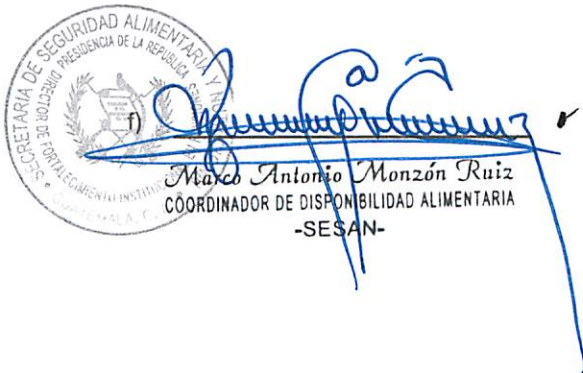 SECRETARIA DE SEGURIDAD ALIMENTARIA Y
PRESIDENCIA DE LA REPUBLICA
DIRECTOR DE FORTALECIMIENTO
GUATEMALA, C.
f)
Marco Antonio Monzón Ruiz
COORDINADOR DE DISPONIBILIDAD ALIMENTARIA
-SESAN-